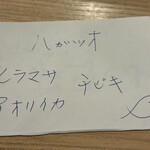 ハガツオ
ヒラマサ チビキ
アオリイカ